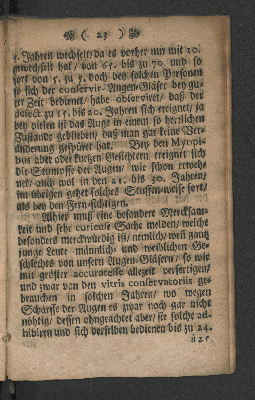 ❧ ( 23 ) ❧
5. Jahren wechselt/ da es vorher nur mit 10.
gewechselt hat/ von 65. biß zu 70. und so
fort von 5. zu 5. doch bey solchen Personen
so sich der conservir-Augen-Gläser bey gu-
ter Zeit bedienet/ habe observiret/ daß der
defect zu 15. biß 20. Jahren sich ereignet/ ja
bey vielen ist das Auge in einem so herrlichen
Zustande geblieben/ daß man gar keine Ver-
änderung gespüret hat. Bey den Myopi-
bus aber oder kurtzen Gesichtern ereignet sich
die Stumpffe der Augen/ wie schon erweh-
net/ auch wol in den 25. biß 30. Jahren/
im übrigen gehet solches Stuffen-weise fort/
als bey den Fern-sichtigen.
Alhier muß eine besondere Mercksam-
keit und sehr curieuse Sache melden/ welche
besonders merckwürdig ist/ nemlich/ weil gantz
junge Leute männlich- und weiblichen Ge-
schlechts von unsern Augen-Gläsern/ so wir
mit gröster accuratesse allezeit verfertigen/
und zwar von den vitris conservatoriis ge-
brauchen in solchen Jahren/ wo wegen
Schärffe der Augen es zwar noch gar nicht
nöhtig/ dessen ohngeachtet aber/ sie solche ad-
hibiren und sich derselben bedienen biß zu 24.
à 25.